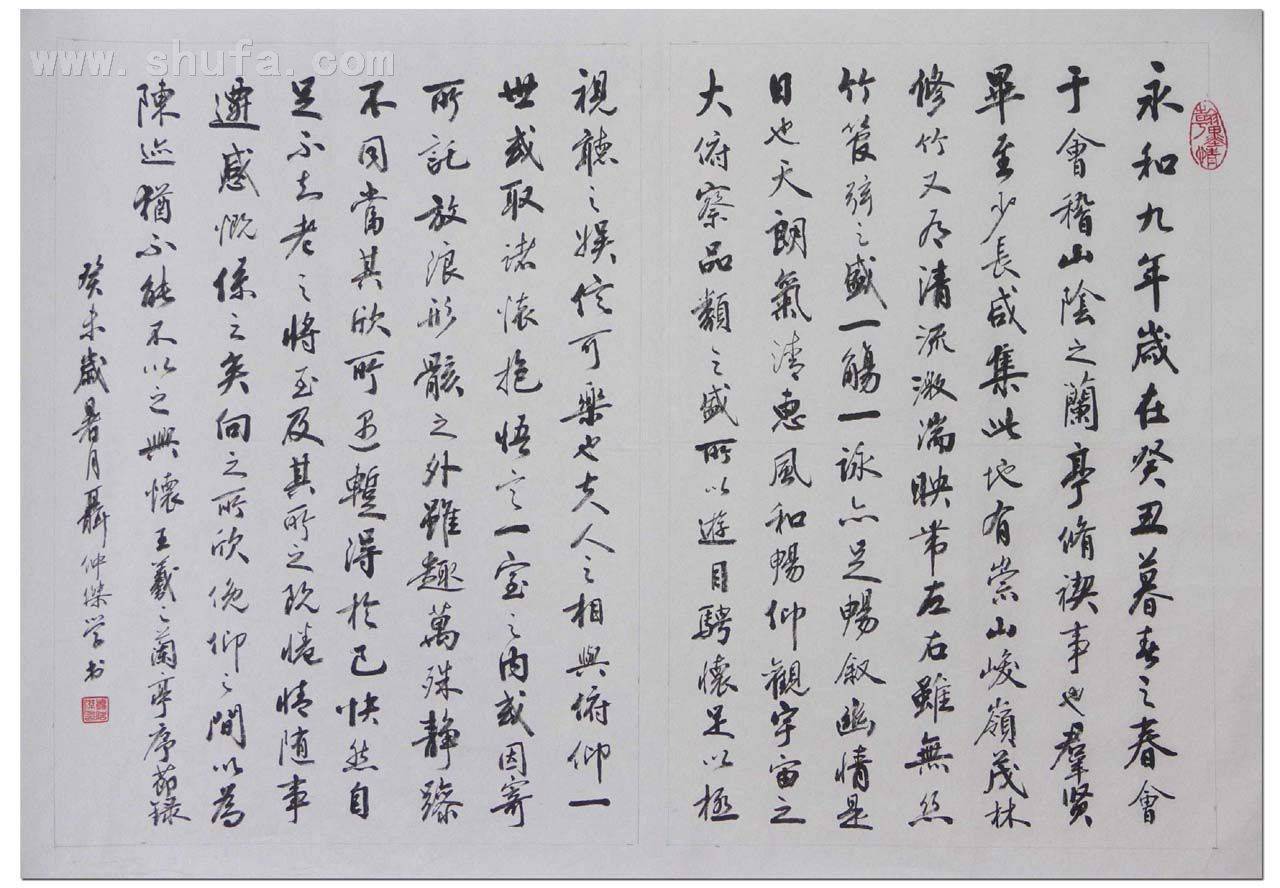 www.shufa.com
翰墨情
永和九年歲在癸丑暮春之春會
于會稽山陰之蘭亭脩禊事也羣賢
畢至少長咸集此地有崇山峻嶺茂林
修竹又有清流激湍映帶左右雖無絲
竹管弦之盛一觴一詠亦足暢叙幽情是
日也天朗氣清惠風和暢仰觀宇宙之
大俯察品類之盛所以遊目騁懷足以極
視聽之娛信可樂也夫人之相與俯仰一
世或取諸懷抱悟言一室之內或因寄
所託放浪形骸之外雖趣萬殊靜躁
不同當其欣所遇暫得於己快然自
足不知老之將至及其所之既惓情隨事
遷感慨係之矣向之所欣俛仰之間以為
陳迹猶不能不以之興懷王羲之蘭亭序節錄
癸未歲暑月聶仲傑学书